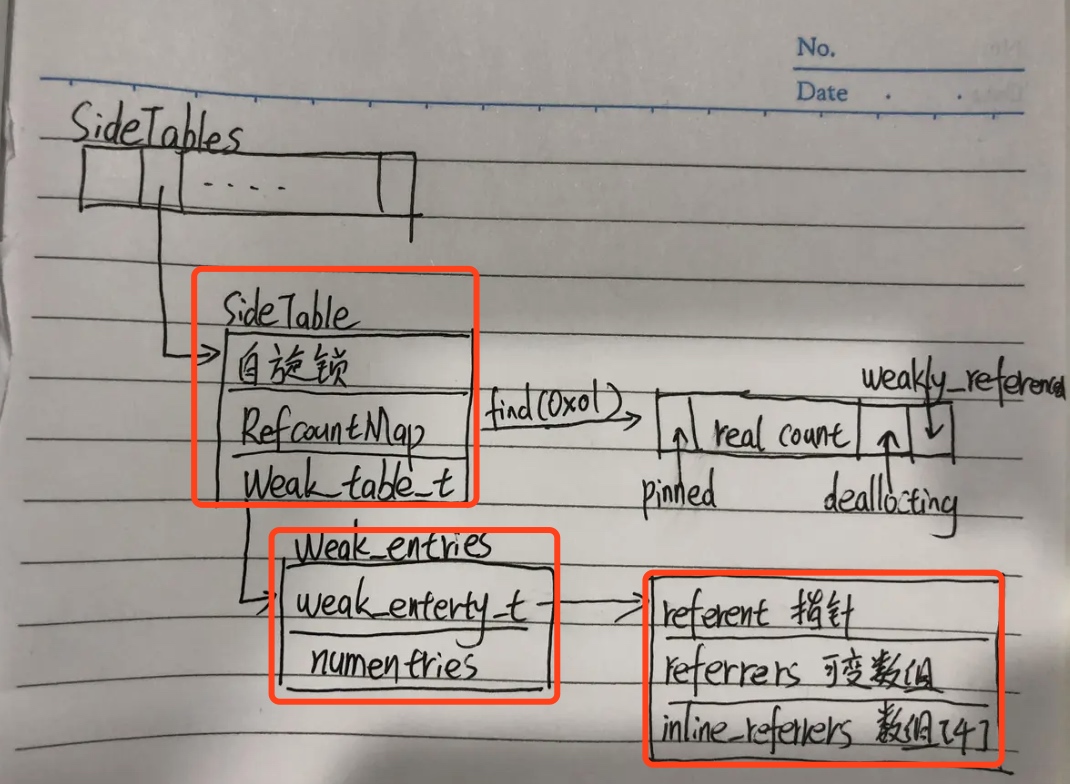 No.
Date
SideTables
SideTable
自旋锁
RefcountMap
find(0x01)
weakly_referenced
real count
Weak_table_t
pinned
deallocting
Weak_entries
weak_enterty_t
numentries
referent 指针
referrers 可变数组
inline_referrers 数组[4]